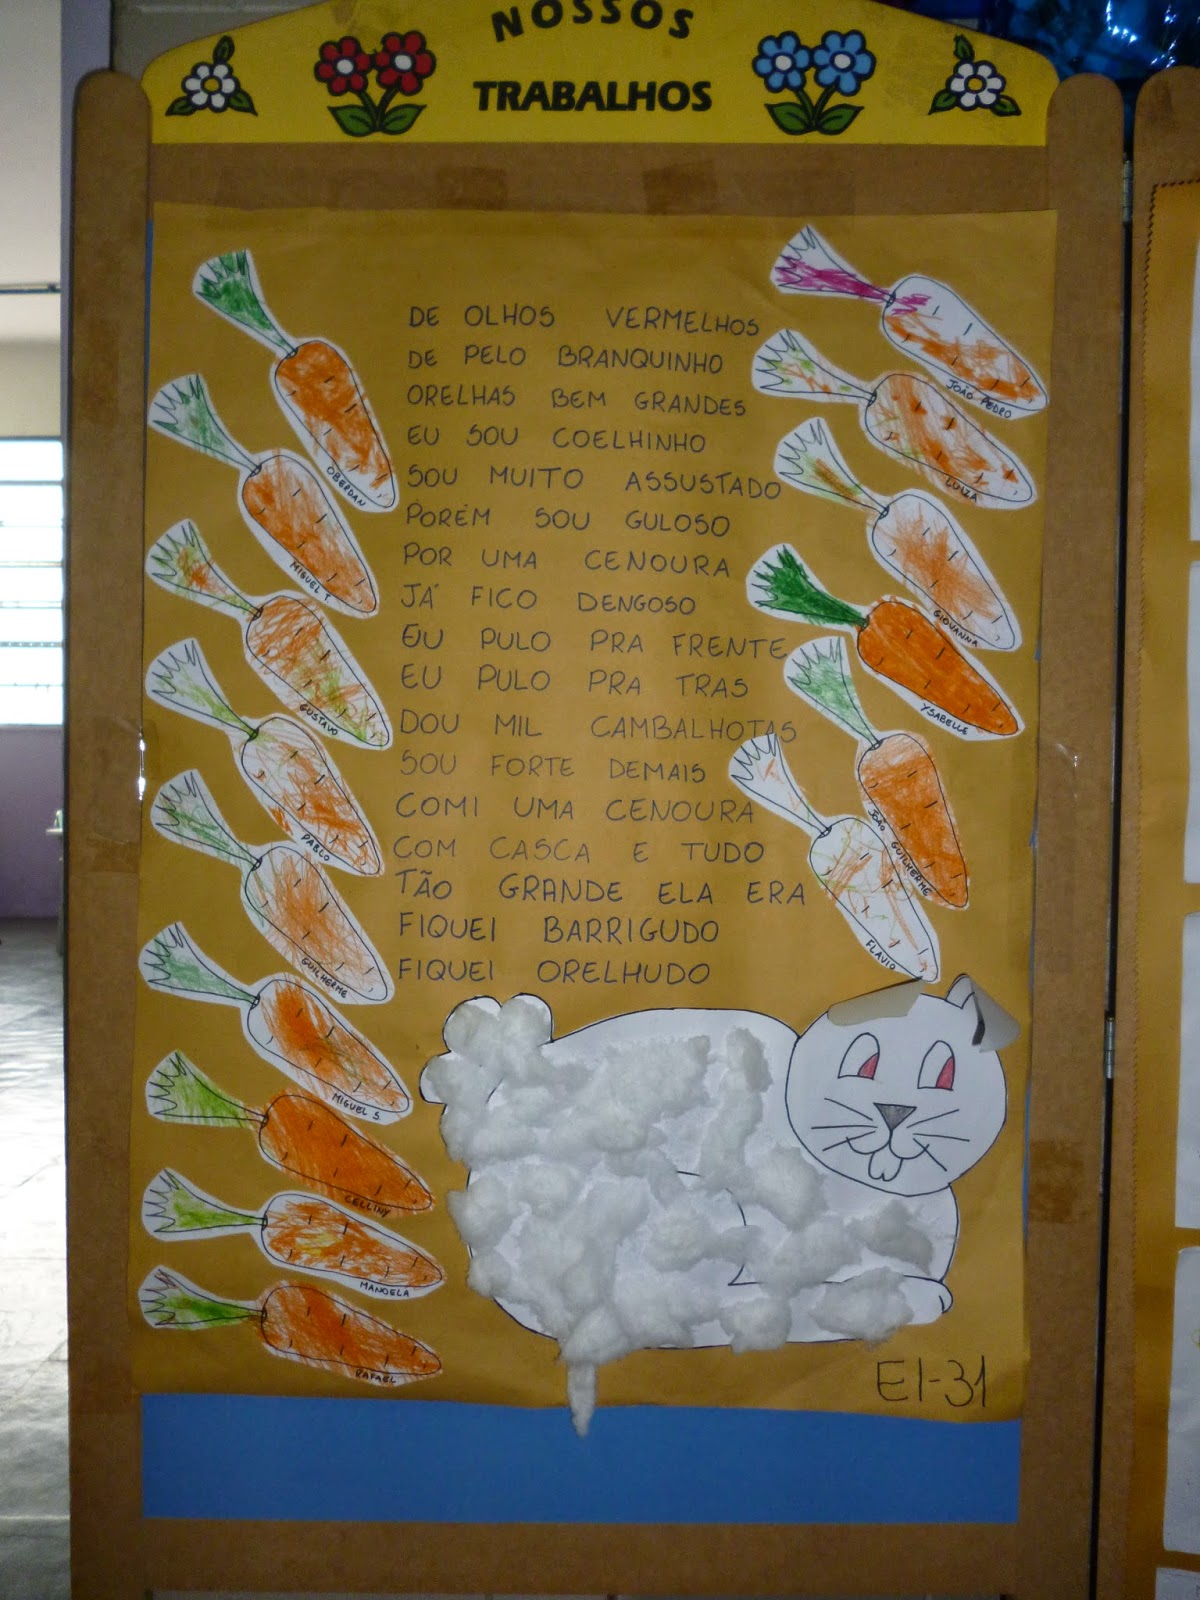 NOSSOS
TRABALHOS
DE OLHOS VERMELHOS
DE PELO BRANQUINHO
ORELHAS BEM GRANDES
EU SOU COELHINHO
SOU MUITO ASSUSTADO
PORÉM SOU GULOSO
POR UMA CENOURA
JÁ FICO DENGOSO
EU PULO PRA FRENTE
EU PULO PRA TRAS
DOU MIL CAMBALHOTAS
SOU FORTE DEMAIS
COMI UMA CENOURA
COM CASCA E TUDO
TÃO GRANDE ELA ERA
FIQUEI BARRIGUDO
FIQUEI ORELHUDO
OBERDAN
MIGUEL T.
GUSTAVO
PABLO
GUILHERME
MIGUEL S.
CELLINY
MANOELA
RAFAEL
JOÃO PEDRO
LUIZA
GIOVANNA
YSABELLE
JOÃO GUILHERME
FLAVIO
EI-31